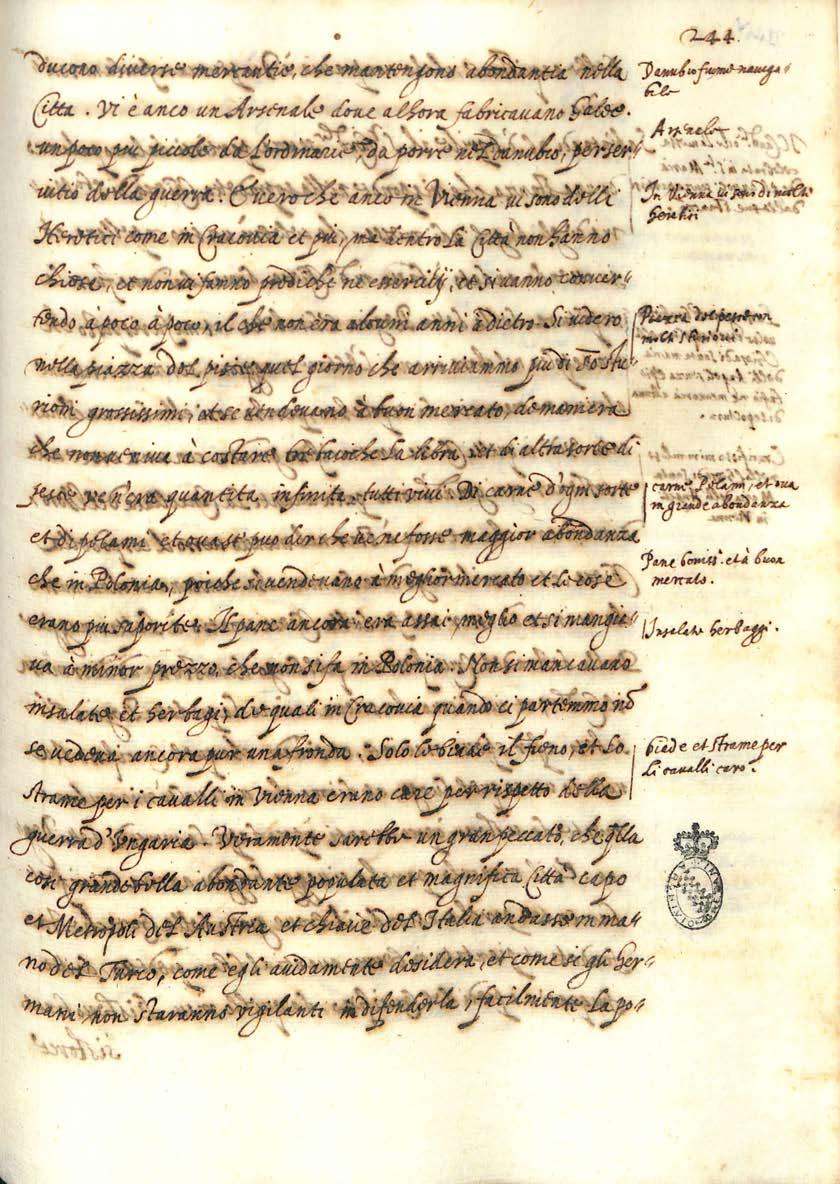 244.
ducono diverse mercantie, che mantengono abondantia nella
Città. Vi è anco un Arsenale dove alhora fabricavano Galee.
un poco più piccole da l'ordinarie, da porre nel Danubio, per ser=
vitio della guerra. È vero che anco in Vienna vi sono delli
Heretici come in Cracovia et più, ma dentro la Città non hanno
chiese, et non vi fanno prediche ne essercitij, et si vanno conver=
tendo à poco à poco, il che non era alcuni anni à dietro. Si videro
nella piazza del pesce quel giorno che arrivammo più di stu=
rioni grossissimi, et se vendevano à buon mercato, de maniera
che non veniva à costare tre baioche la libra, et di altra sorte di
pesce ve n'era quantita infinita tutti vivi. Di carne d'ogni sorte
et di polami et ova se può dir che ve ne fosse maggior abondanza
che in Polonia, poiche si vendevano à meglior mercato et le cose
erano più saporite. Il pane ancora era assai meglio et si mangia=
va à minor prezzo, che non si fa in Polonia. Non si mancavano
insalate et herbagi, de quali in Cracovia quando ci partemmo nō
se vedeva ancora pur una fronda. Solo le biade il fieno, et lo
strame per i cavalli in Vienna erano care per rispetto della
guerra d'Ungaria. Veramente sarebbe un gran peccato, che q̃lla
cosi grande bella abondante populata et magnifica Città capo
et Metropoli del Austria et chiave del Italia andasse in ma=
no del Turco, come egli avidamente desidera, et come se gli Ger=
mani non staranno vigilanti in difenderla, facilmente la po=
Danubio fiume naviga=
bile
Arsenale
In Vienna vi sono di molti
heretici
Piazza del pesce con
molti sturioni
carne polami, et ova
in grande abondanza
Pane boniss.º et à buon
mercato.
Insalate herbaggi.
biade et strame per
li cavalli caro.